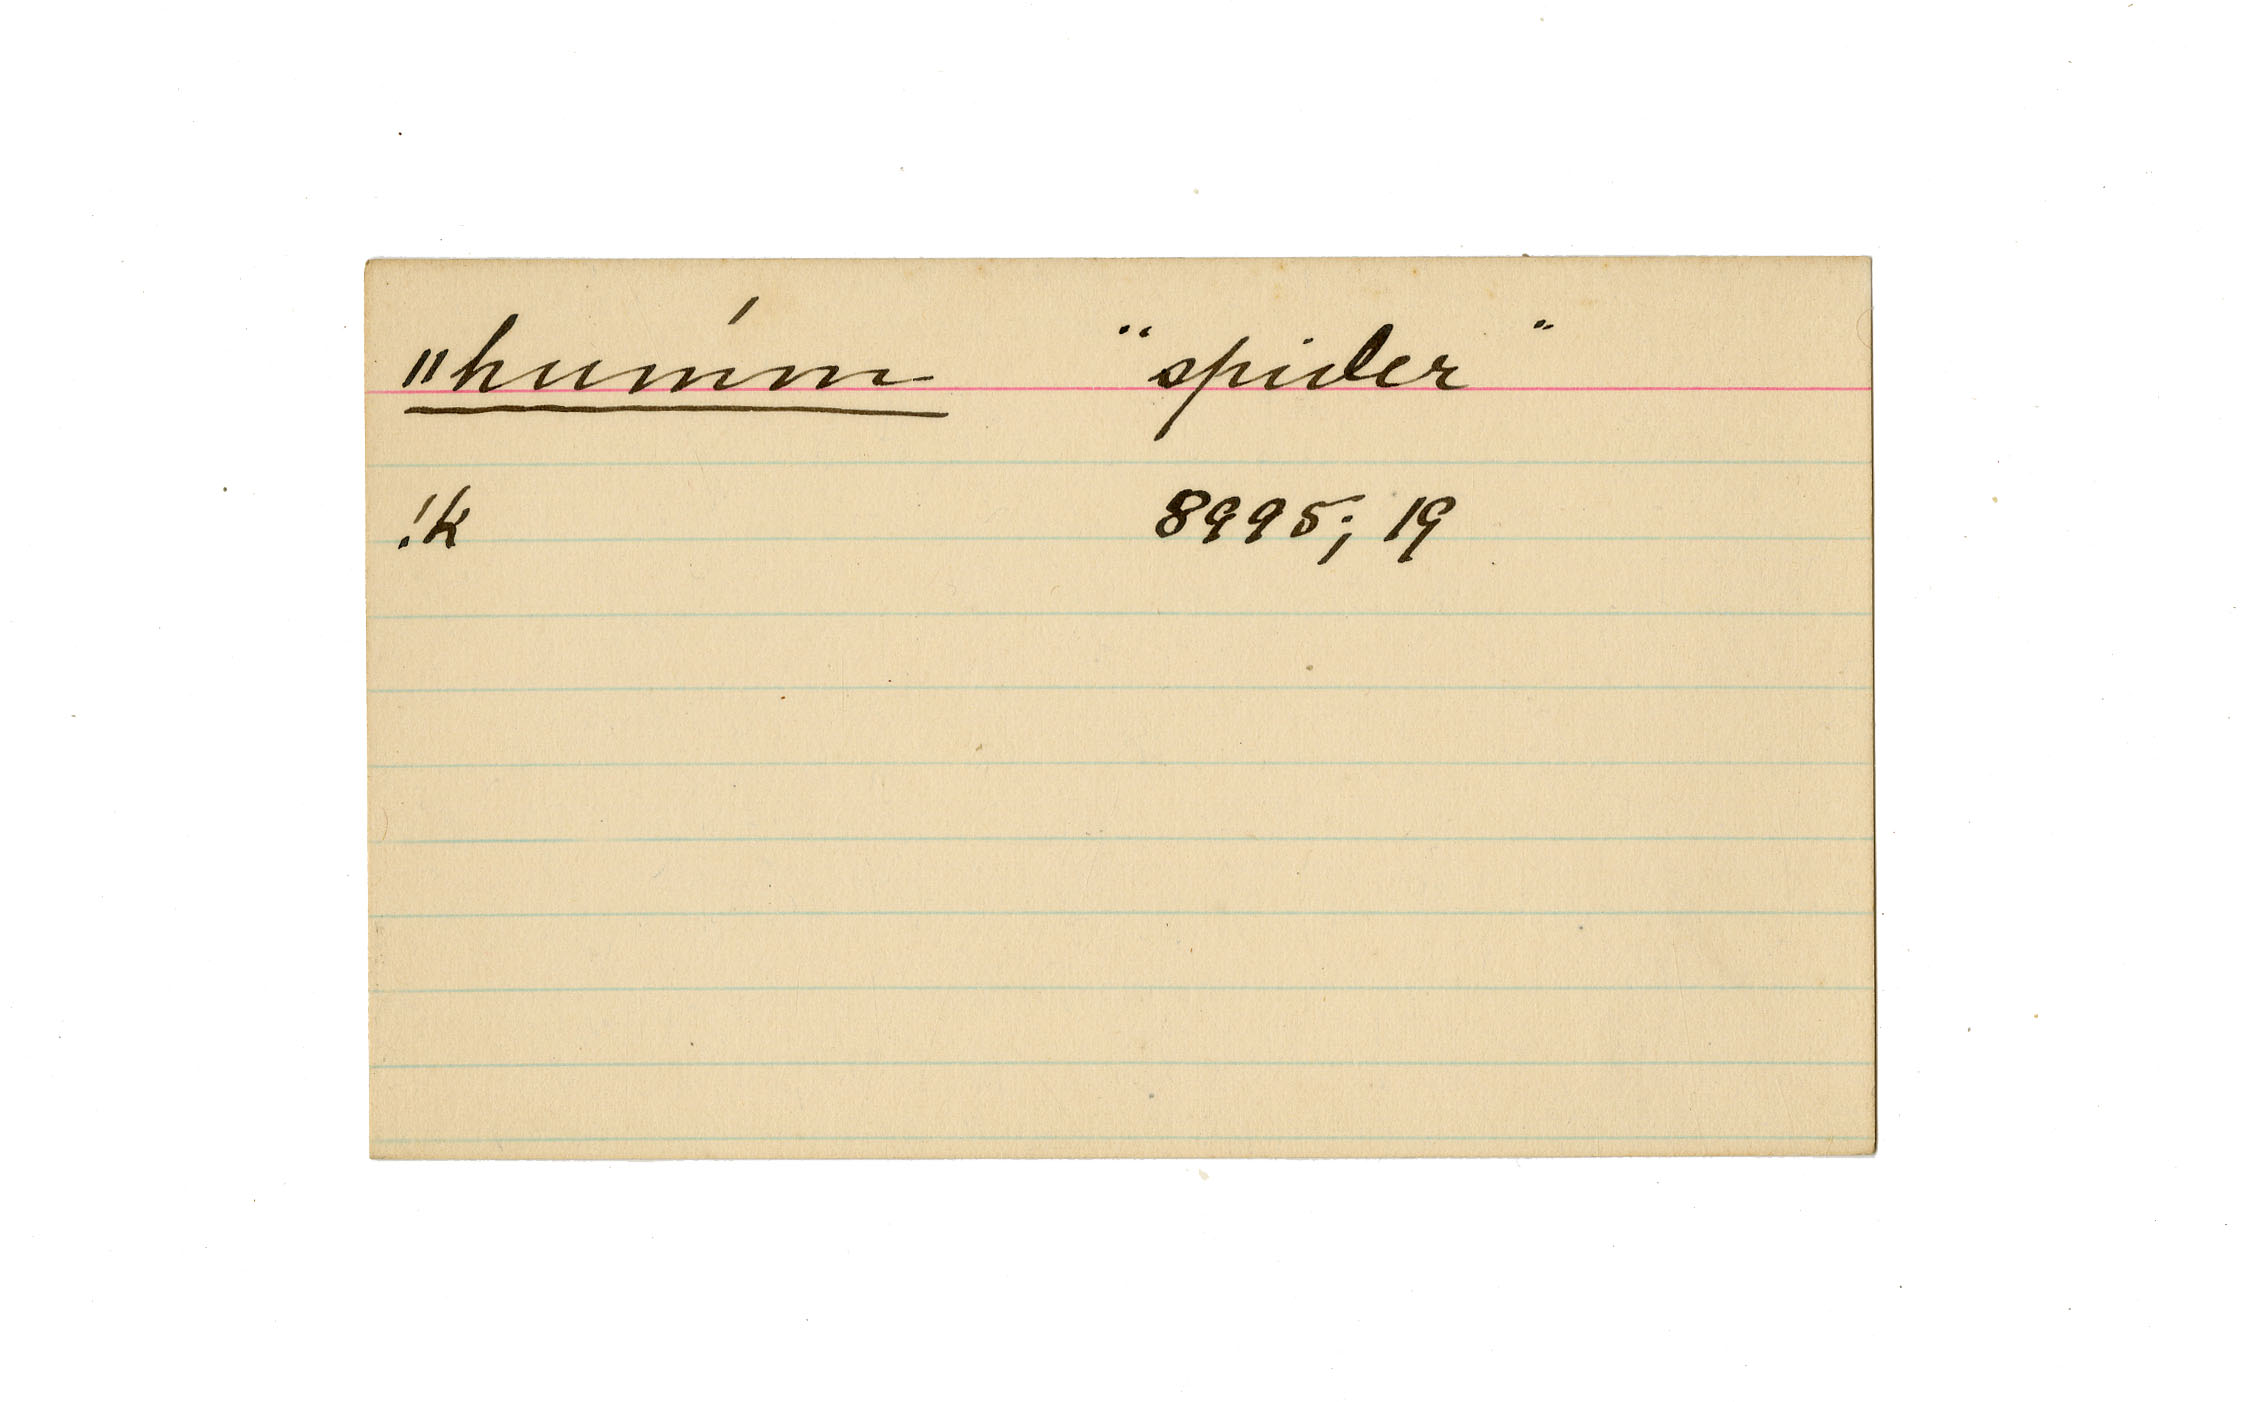 "humḿ "spider"
!k 8995; 19